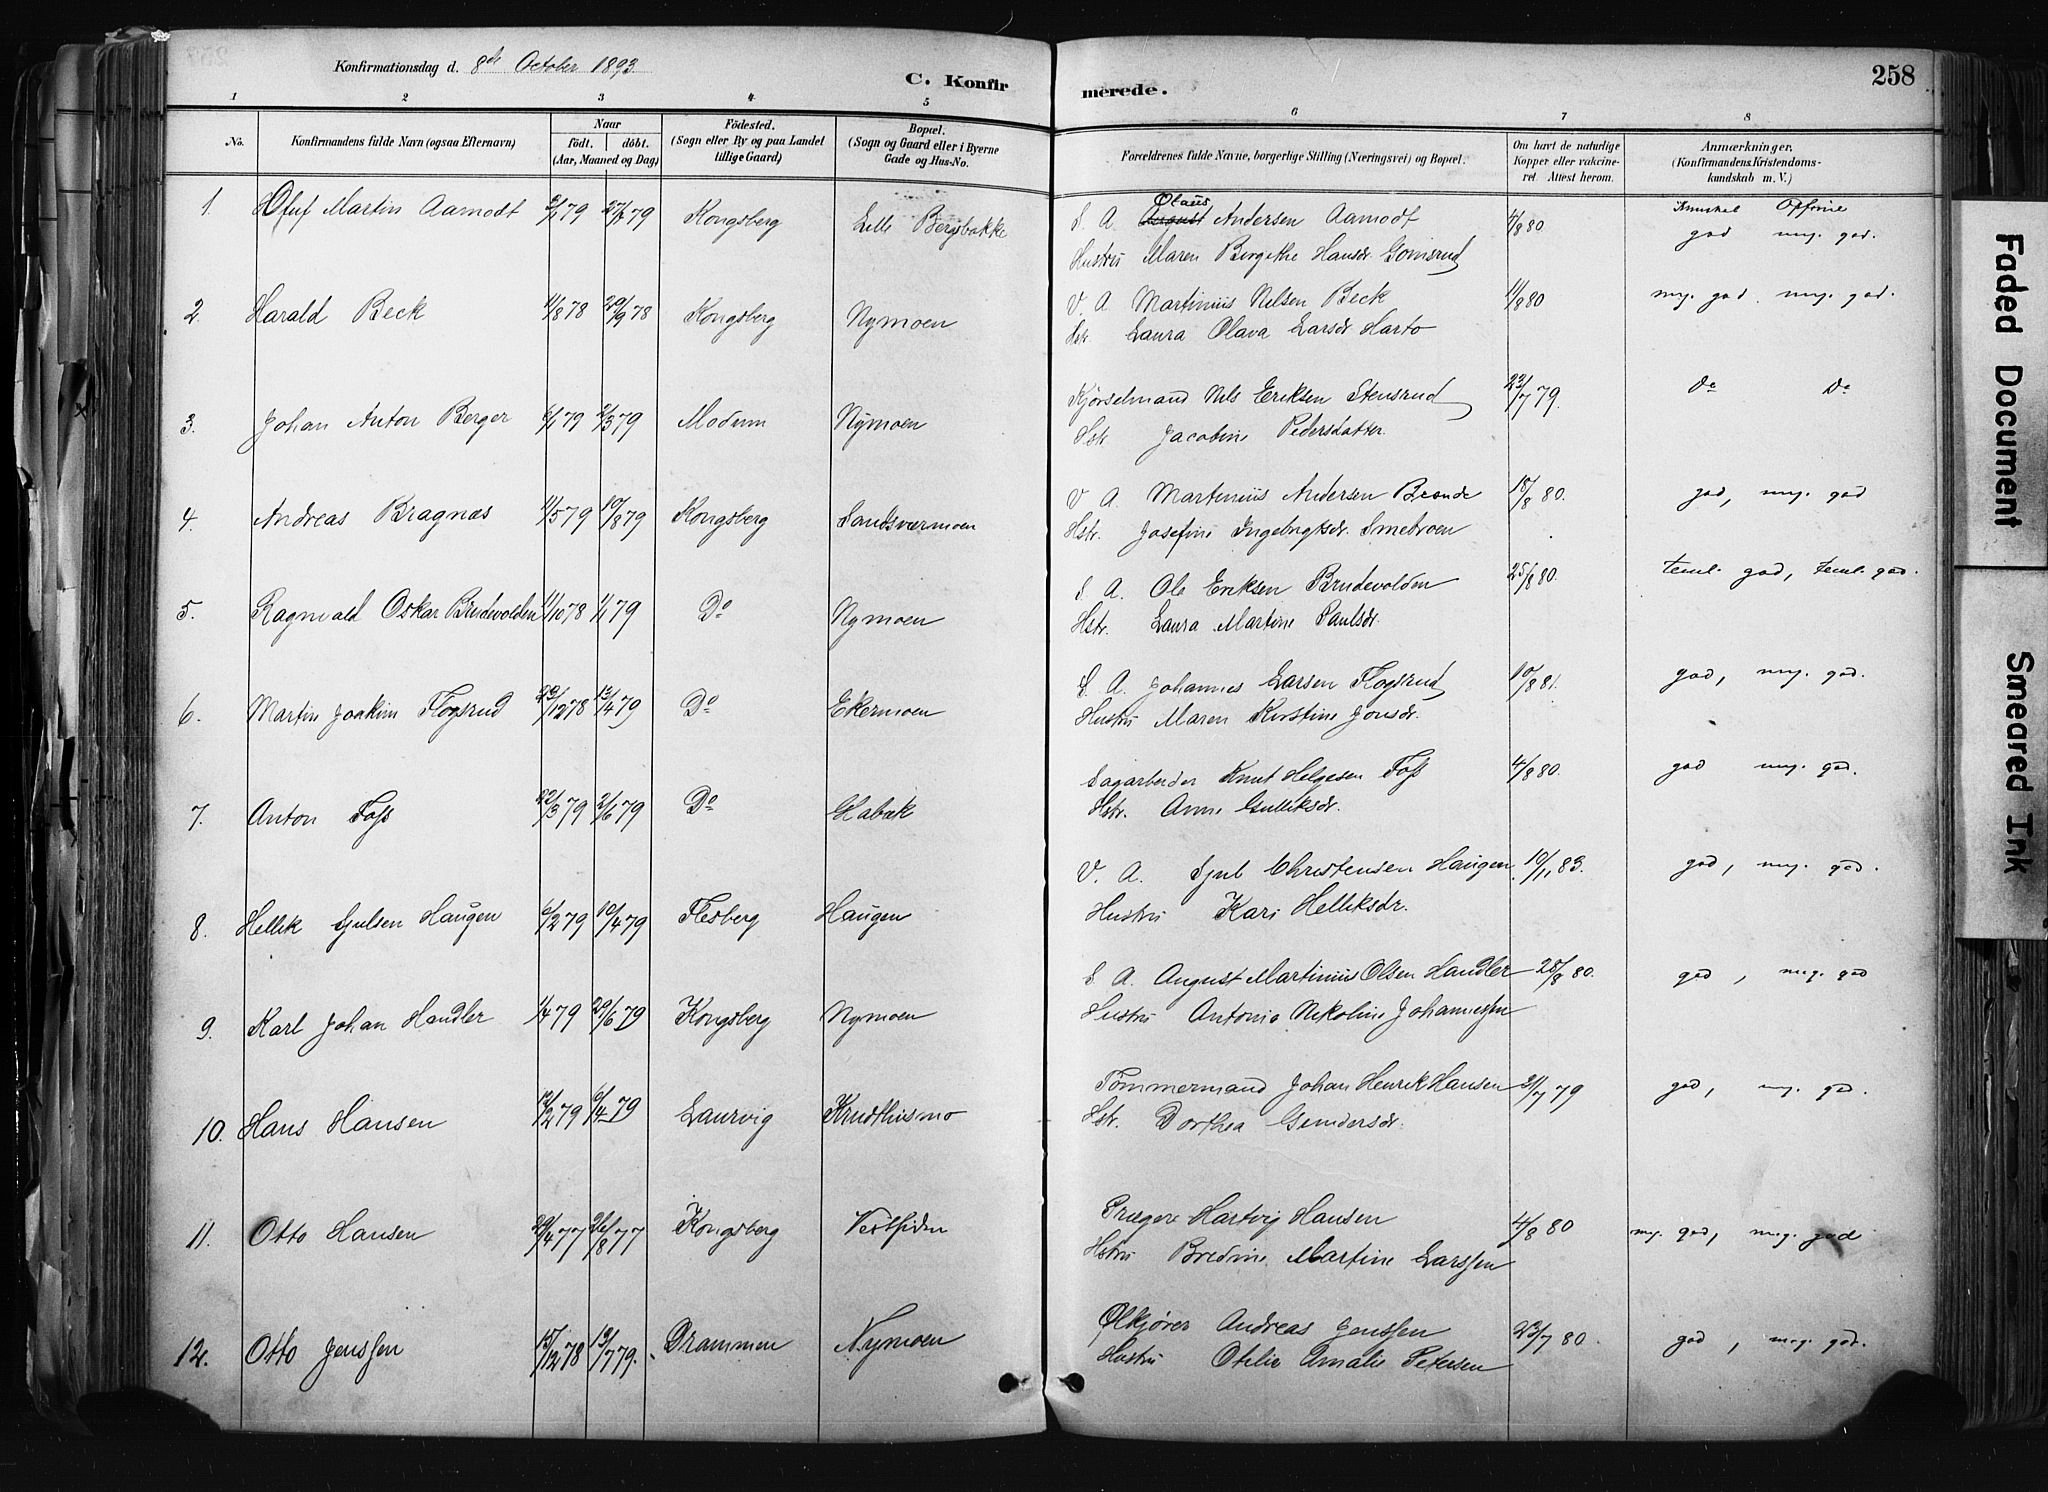 Konfirmationsdag d. 8de October 1893.
C. Konfirmerede.
258
1 2 3 4 5 6 7 8
No. Konfirmandens fulde Navn (ogsaa Efternavn) Naar født. døbt. (Aar, Maaned og Dag) Fødested. (Sogn eller By og paa Landet tillige Gaard) Bopæl. (Sogn og Gaard eller i Byerne Gade og Hus-No. Forældrenes fulde Navne, borgerlige Stilling (Næringsvei) og Bopæl. Om havt de naturlige Kopper eller vakcineret. Attest herom. Anmærkninger. (Konfirmandens Kristendomskundskab m. V.)
1. Oluf Martin Aamodt 27/7 79 Kongsberg Lille Bergsbakke S. A. August Olaus Andersen Aamodt 4/8 80 god meg. god.
Hustru Maren Birgithe Hansdr. Gomsrud
2. Harald Beck 11/8 78 29/9 78 Kongsberg Nymoen V. A. Martinius Nilsen Beck 11/8 80 meg. god. meg. god.
Hstr. Laura Olava Larsdr Harto
3. Johan Anton Berger 6/1 79 2/3 79 Modum Nymoen Kjørselmand Nils Eriksen Stensrud 23/7 79. Do Do
Hstr. Jacobine Pedersdatter
4. Andreas Bragnæs 11/5 79 10/8 79 Kongsberg Sandsværmoen V. A. Martinius Andersen Brende 18/8 80. god, meg. god
Hstr. Josefine Ingebrigtsdr. Smebroen
5. Ragnvald Oskar Brudevolden 11/10 78 1/1 79 Do Nymoen S. A. Ole Eriksen Brudevolden 25/8 80. teml. god, teml. god.
Hstr. Laura Martine Paulsdr.
6. Martin Joakim Flogsrud 23/12 78 13/4 79 Do Ekermoen S. A. Johannes Larsen Flogsrud 10/8 81. god, meg. god.
Hustru Maren Kirstine Jonsdr.
7. Anton Foss 22/3 79 2/6 79 Do Habæk Sagarbeider Knut Helgesen Foss 4/8 80. god meg. god.
Hstr. Anne Gulliksdr.
8. Hellik Sjulsen Haugen 6/2 79 10/4 79 Flesberg Haugen V. A. Sjul Christensen Haugen 10/11 83. god, meg. god.
Hustru Kari Helliksdr.
9. Karl Johan Handler 1/4 79 29/6 79 Kongsberg Nymoen S. A. August Martinius Olsen Handler 28/8 80. god, meg. god
Hustru Antonie Nikoline Johannessen
10. Hans Hansen 12/2 79 6/4 79 Laurvig Krudthusmo Tømmermand Johan Henrik Hansen 21/7 79 god, meg. god.
Hstr. Dorthea Gundersdr.
11. Otto Hansen 29/4 77 26/8 77 Kongsberg Vestsiden Præger Hartvig Hansen 4/8 80 meg. god, meg. god
Hstru Bredine Martine Larssen
12. Otto Jenssen 15/12 78 13/7 79. Drammen Nymoen Ølkjører Andreas Jenssen 23/7 80. god, meg. god.
Hustru Otilie Amalie Petersen
Faded Document
Smeared Ink